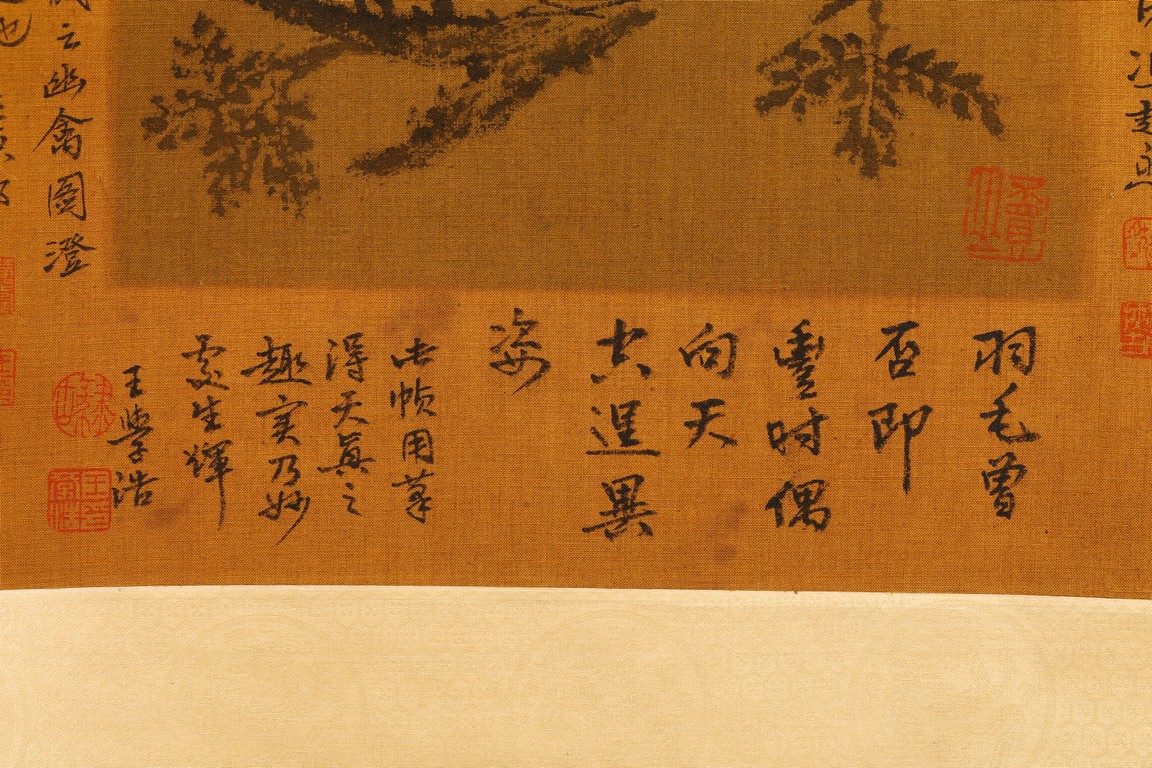 羽毛曾
否即
豐时偶
向天
空逞異
姿
此幀用筆
得天真之
趣实乃妙
處生輝
王學浩
云幽禽圖澄